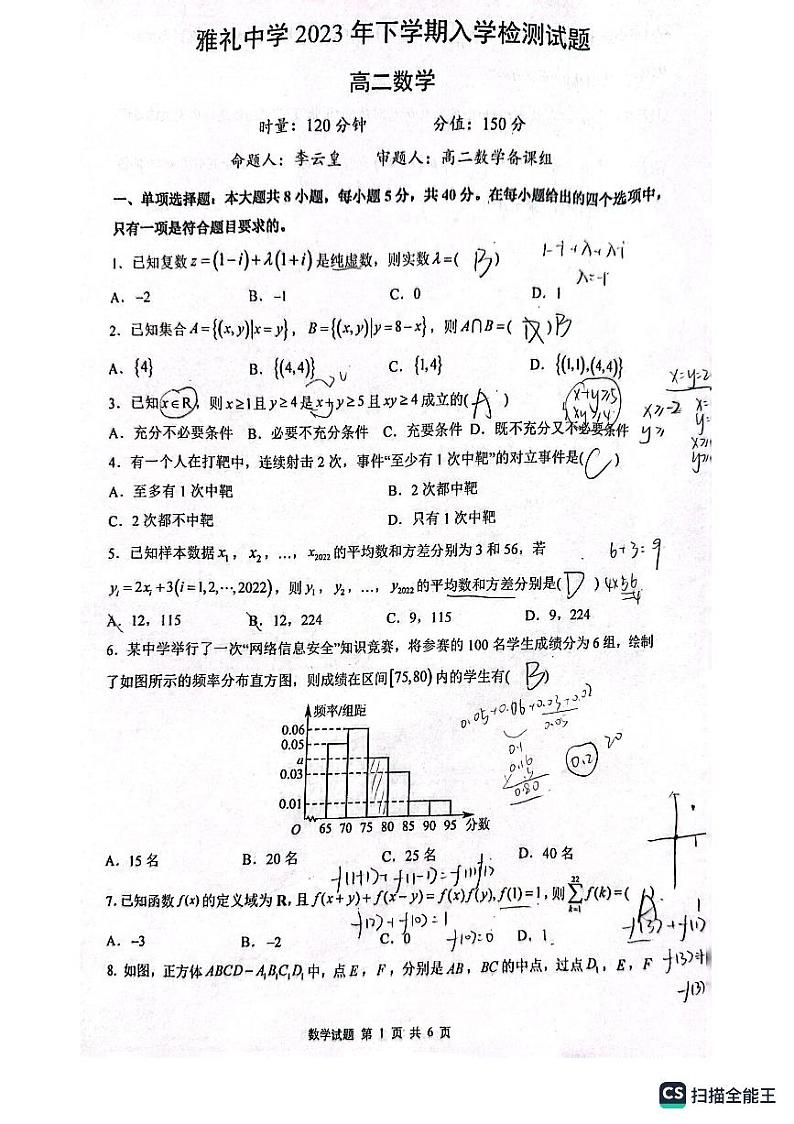 雅礼中学 2023 年下学期入学检测试题
高二数学
时量：120 分钟 分值：150 分
命题人：李云皇 审题人：高二数学备课组
一、单项选择题：本大题共 8 小题，每小题 5 分，共 40 分。在每小题给出的四个选项中，
只有一项是符合题目要求的。
1-i+λ+λi
1、已知复数 z=(1-i)+λ(1+i) 是纯虚数，则实数 λ=( B )
λ=-1
A．-2 B．-1 C．0 D．1
2．已知集合 A={(x,y)|x=y}，B={(x,y)|y=8-x}，则 A∩B=( )B
A．{4} B．{(4,4)} C．{1,4} D．{(1,1),(4,4)}
x=y=2
3．已知 x∈R，则 x≥1 且 y≥4 是 x+y≥5 且 xy≥4 成立的( A )
x+y≥5
xy≥4
x≥-2
A．充分不必要条件 B．必要不充分条件 C．充要条件 D．既不充分又不必要条件
4．有一个人在打靶中，连续射击 2 次，事件“至少有 1 次中靶”的对立事件是( C )
A．至多有 1 次中靶 B．2 次都中靶
C．2 次都不中靶 D．只有 1 次中靶
5．已知样本数据 x₁，x₂，…，x₂₀₂₂ 的平均数和方差分别为 3 和 56，若
6+3=9
yᵢ=2xᵢ+3(i=1,2,⋯,2022)，则 y₁，y₂，…，y₂₀₂₂ 的平均数和方差分别是( D )
4×56
A．12，115 B．12，224 C．9，115 D．9，224
6．某中学举行了一次“网络信息安全”知识竞赛，将参赛的 100 名学生成绩分为 6 组，绘制
了如图所示的频率分布直方图，则成绩在区间[75,80)内的学生有( B )
频率/组距
0.06
0.05
a
0.03
0.01
O 65 70 75 80 85 90 95 分数
0.05+0.06+0.03+0.02
0.16
0.80
0.2
20
A．15 名 B．20 名 C．25 名 D．40 名
f(1+1)+f(1-1)=f(1)f(1)
7．已知函数 f(x) 的定义域为 R，且 f(x+y)+f(x-y)=f(x)f(y),f(1)=1，则 ∑ₖ₌₁²² f(k)=( A )
f(2)+f(0)=1
f(3)+f(1)
A．-3 B．-2 C．0 D．1
8. 如图，正方体 ABCD-A₁B₁C₁D₁ 中，点 E，F，分别是 AB，BC 的中点，过点 D₁，E，F
数学试题 第 1 页 共 6 页
CS 扫描全能王